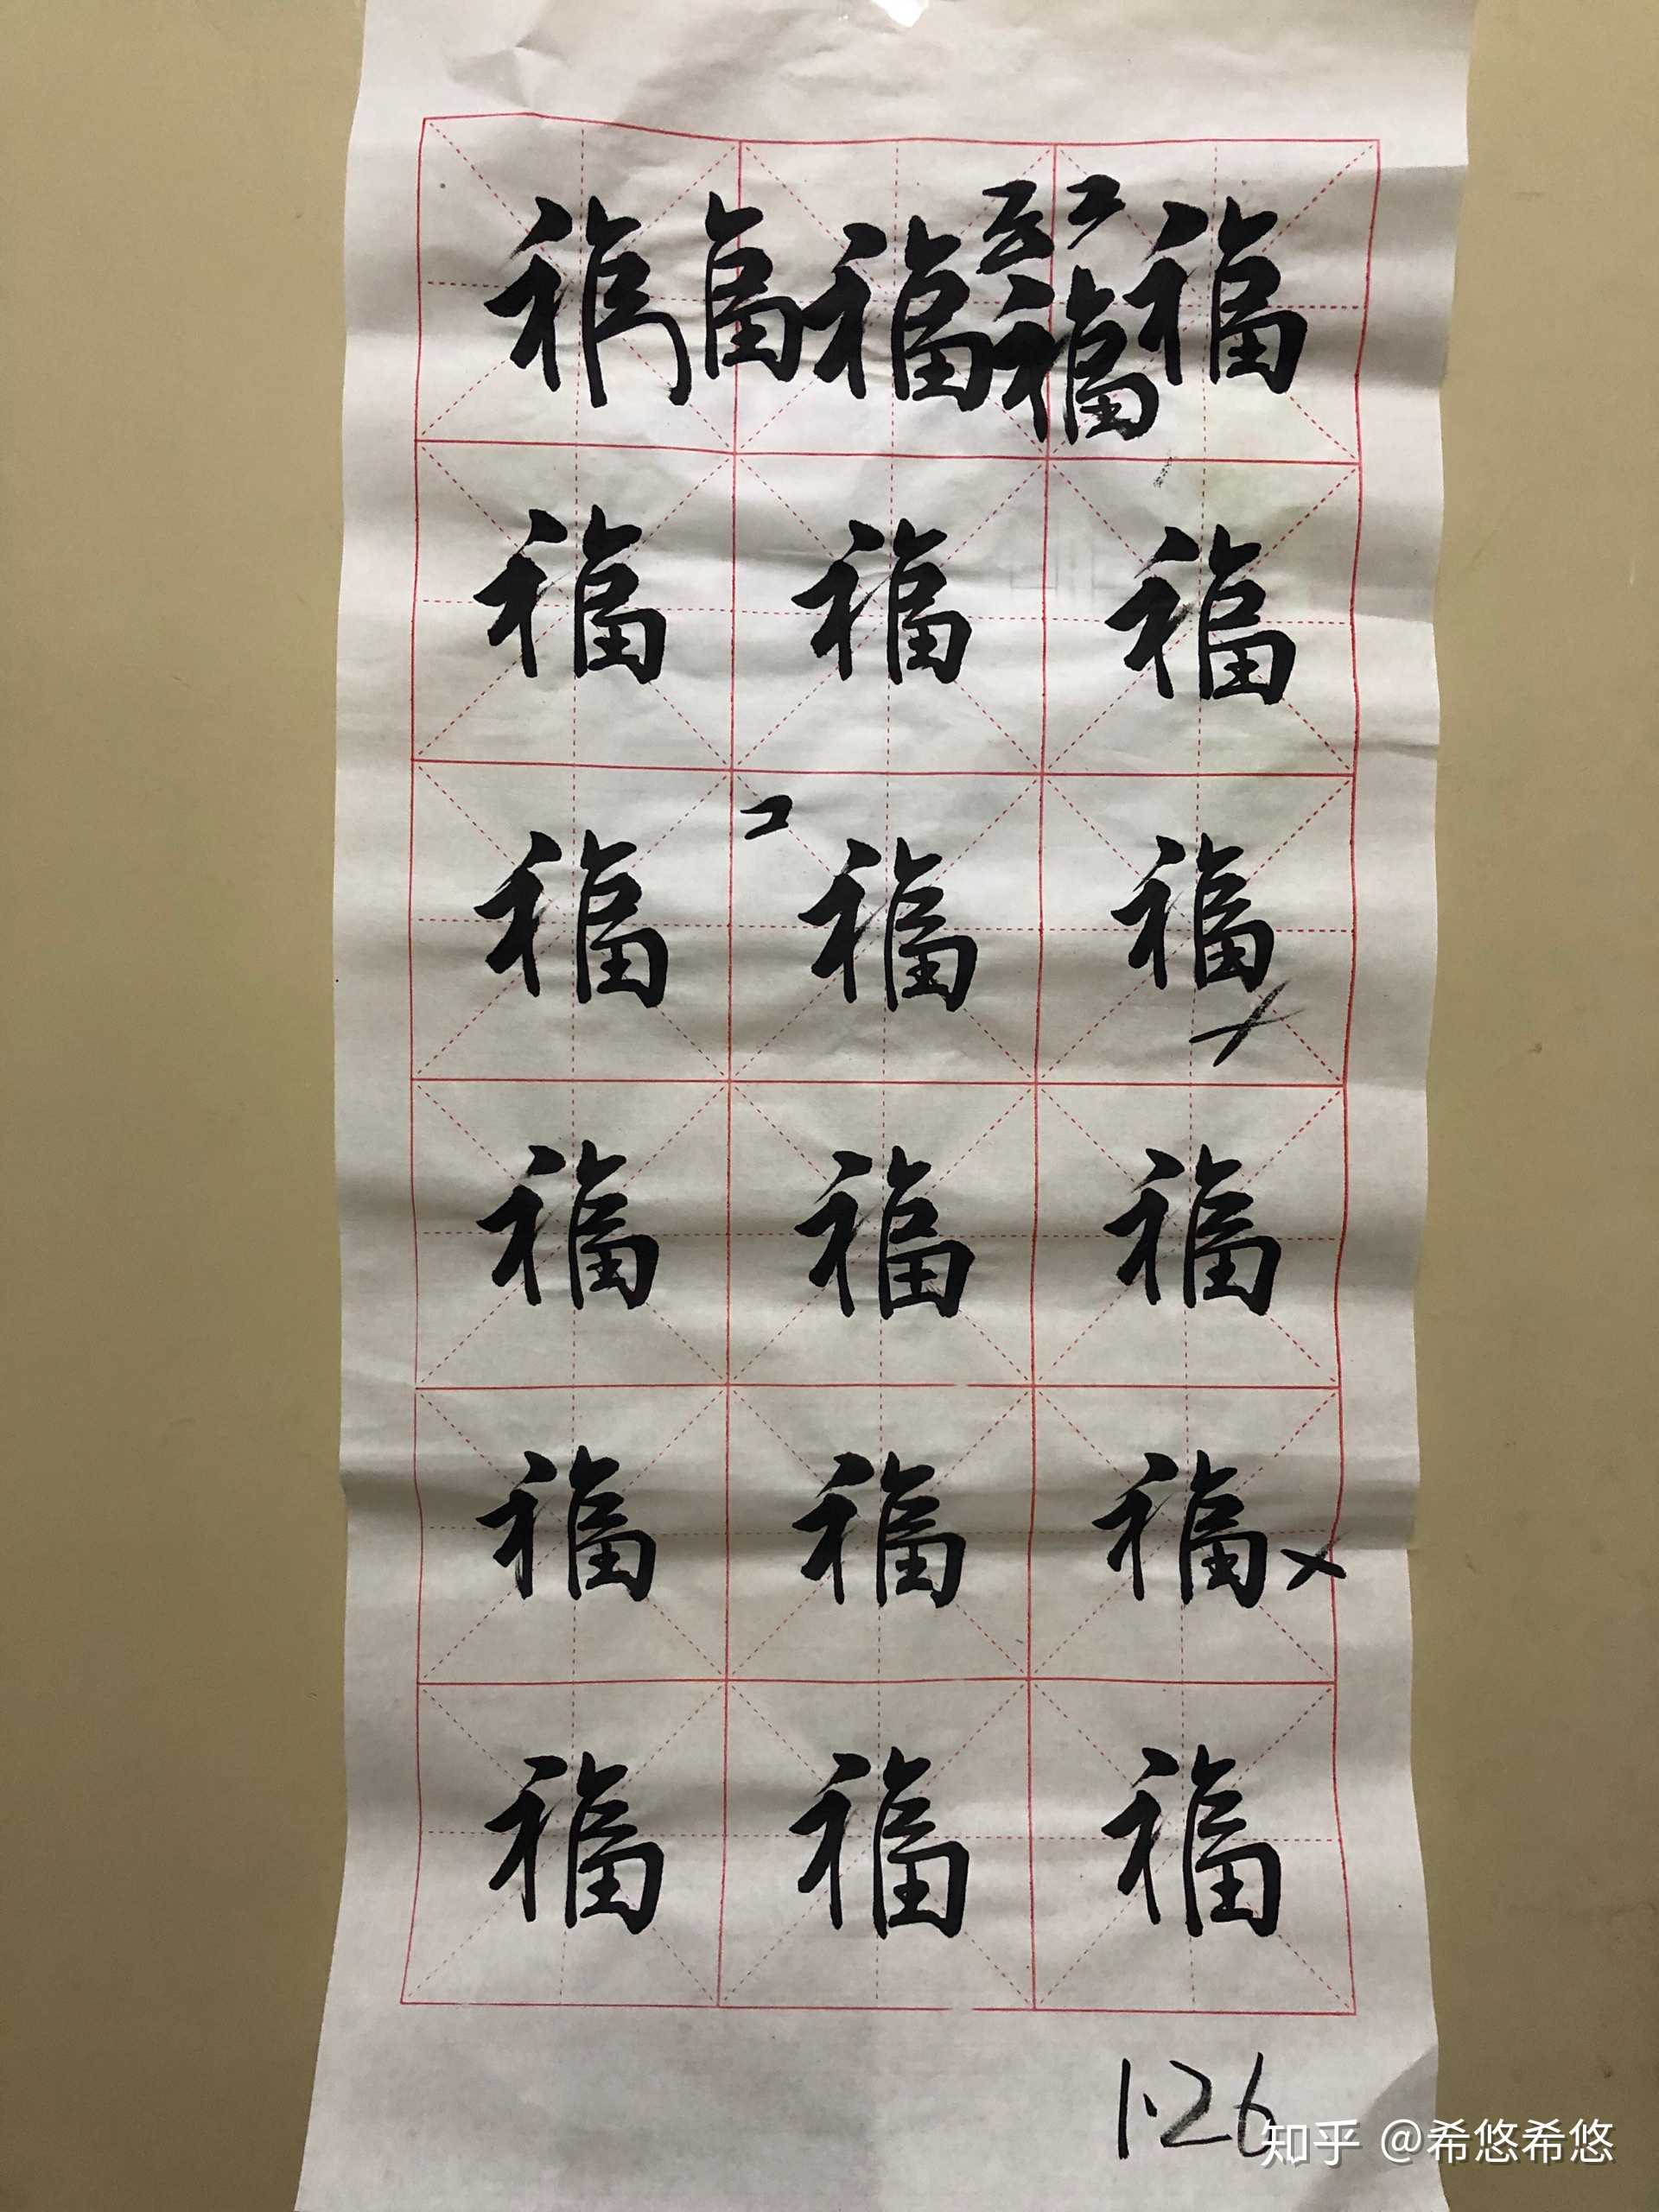 福 福 福 福
福 福 福
福 福 福
福 福 福
福 福 福
福 福 福
1.26
知乎 @希悠希悠